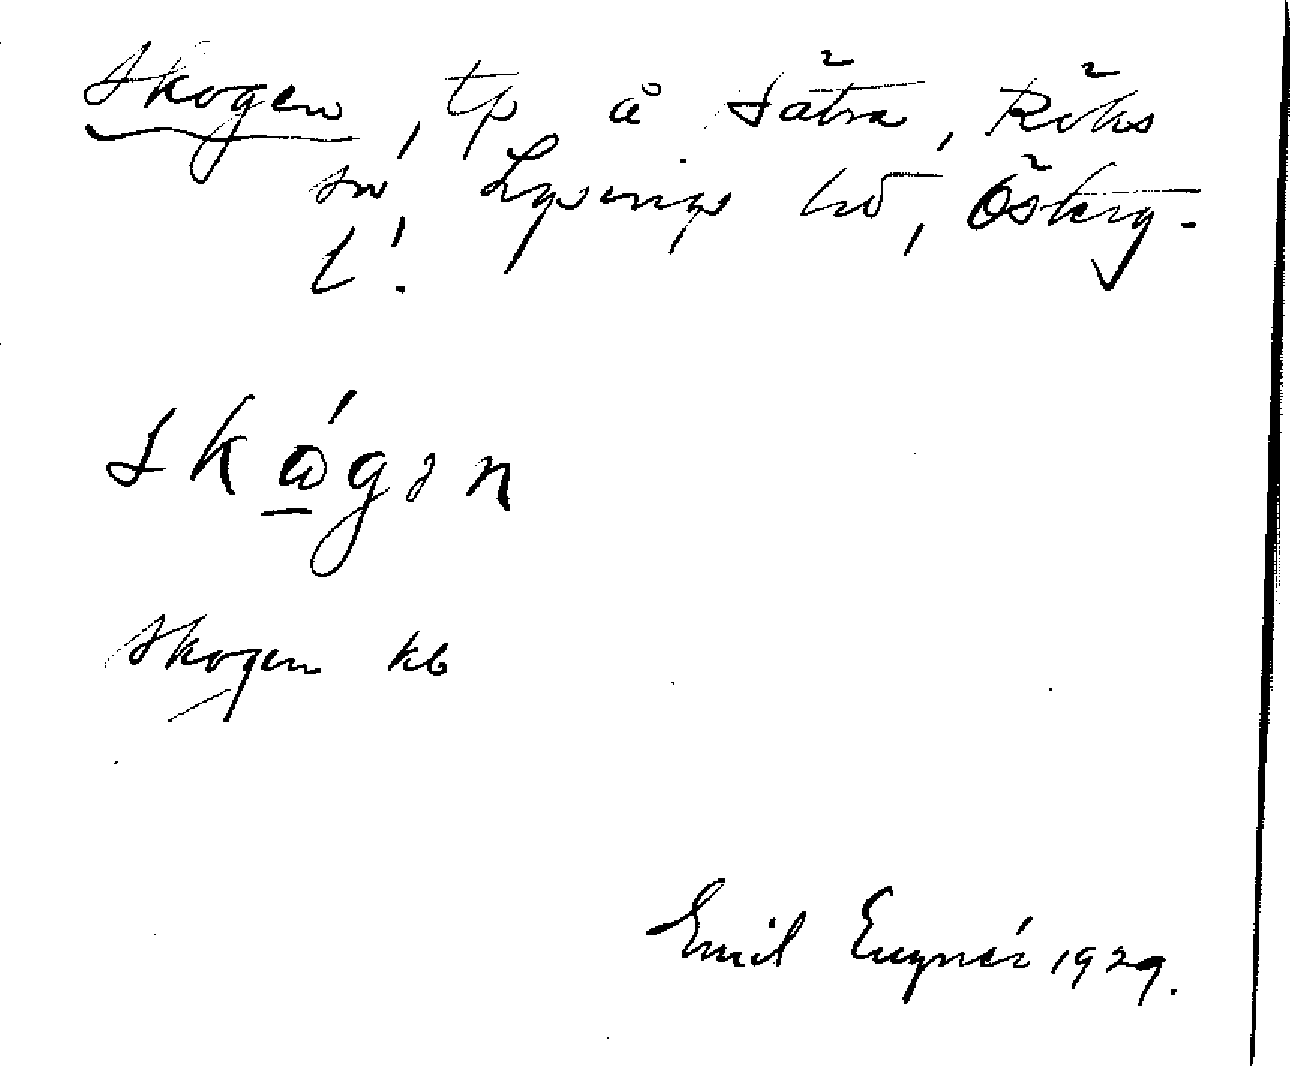 Skogen, tp å Sätra, Röks
sn, Lysings hd, Österg.
l.
skǻ̲gən
Skogen kb
Emil Eugnér 1929.